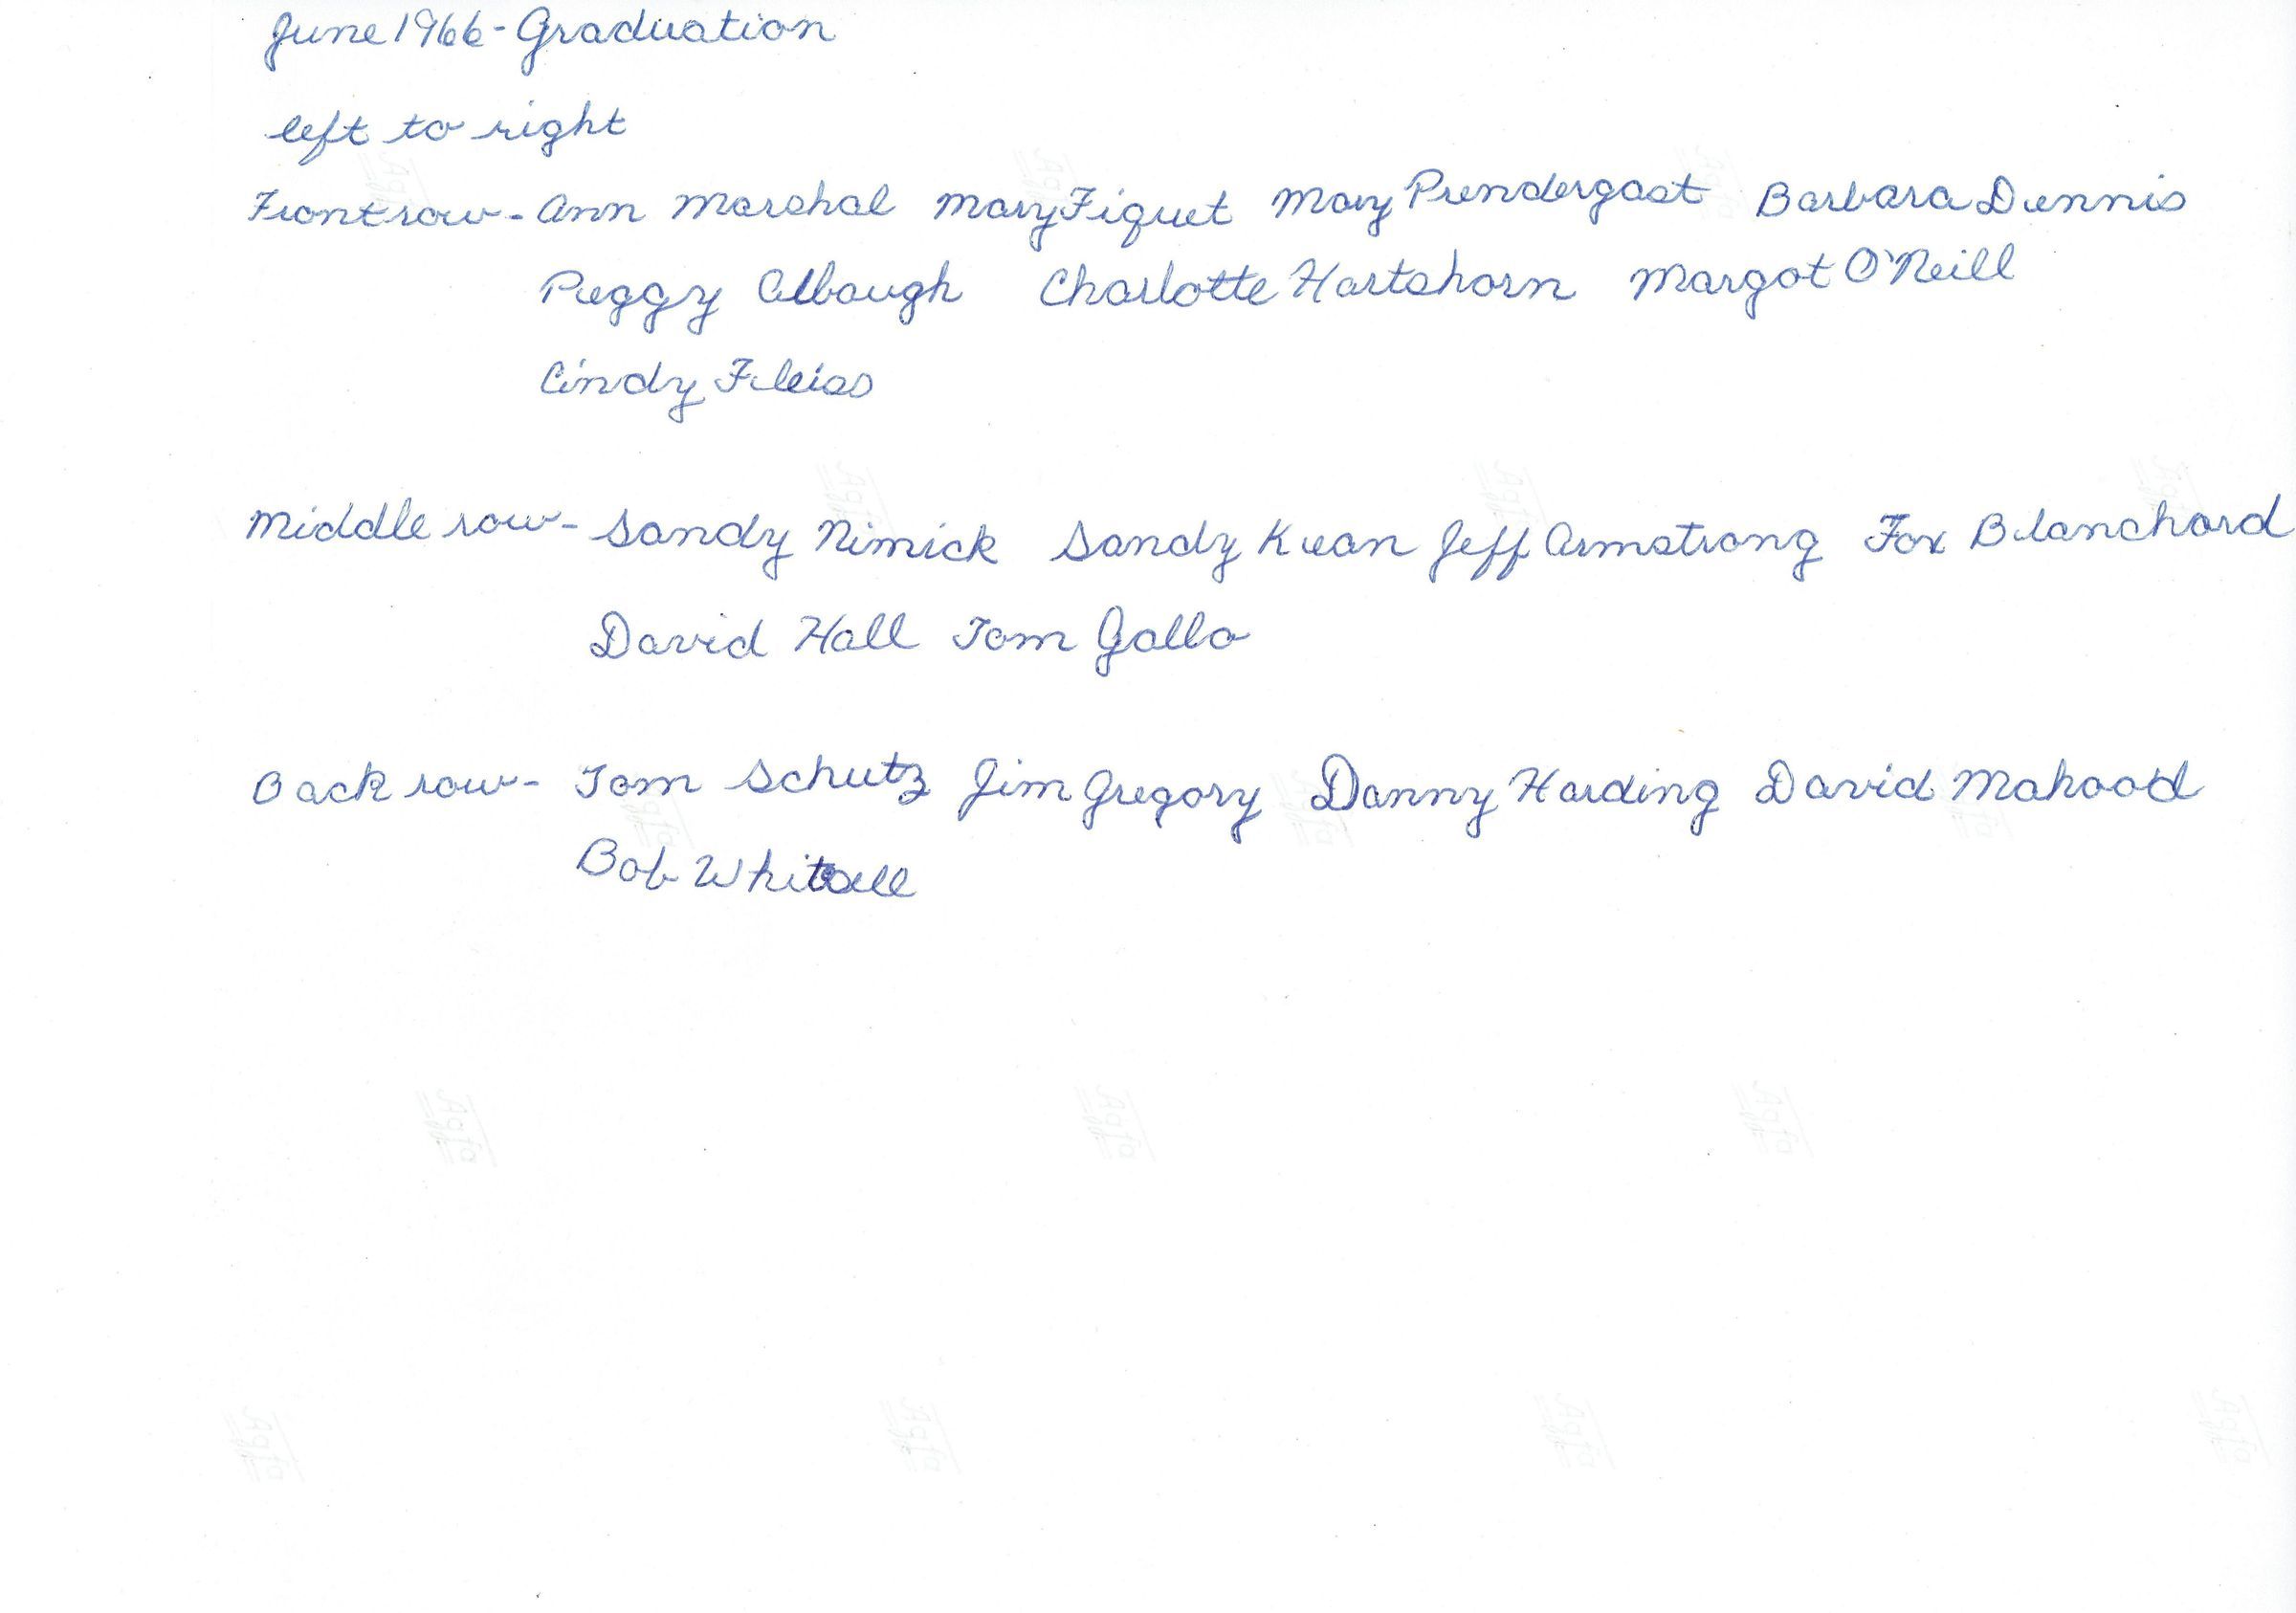 June 1966 - Graduation
left to right
Front row - Ann Marshal Mary Fiquet Mary Prendergast Barbara Dennis
Peggy Albaugh Charlotte Hartshorn Margot O'Neill
Cindy Fleiss
Middle row - Sandy Nimick Sandy Kean Jeff Armstrong Fox Blanchard
David Hall Tom Gallo
Back row - Tom Schutz Jim Gregory Danny Harding David Mahood
Bob Whitall